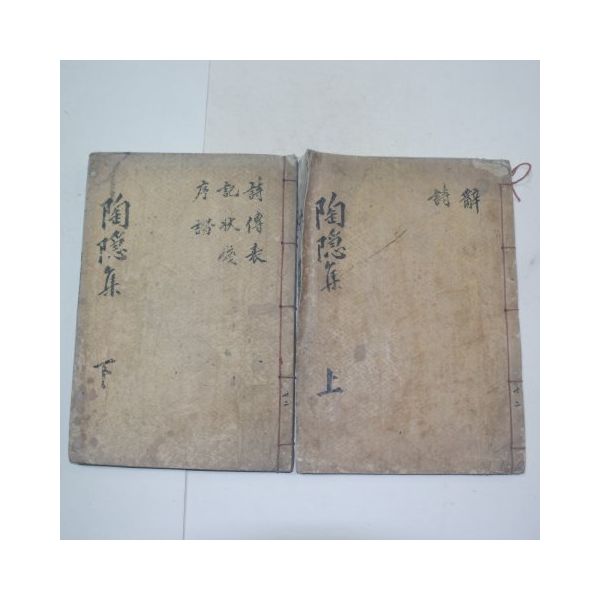 陶隱集
上
辭
詩
陶隱集
下
詩傳表
記狀
序